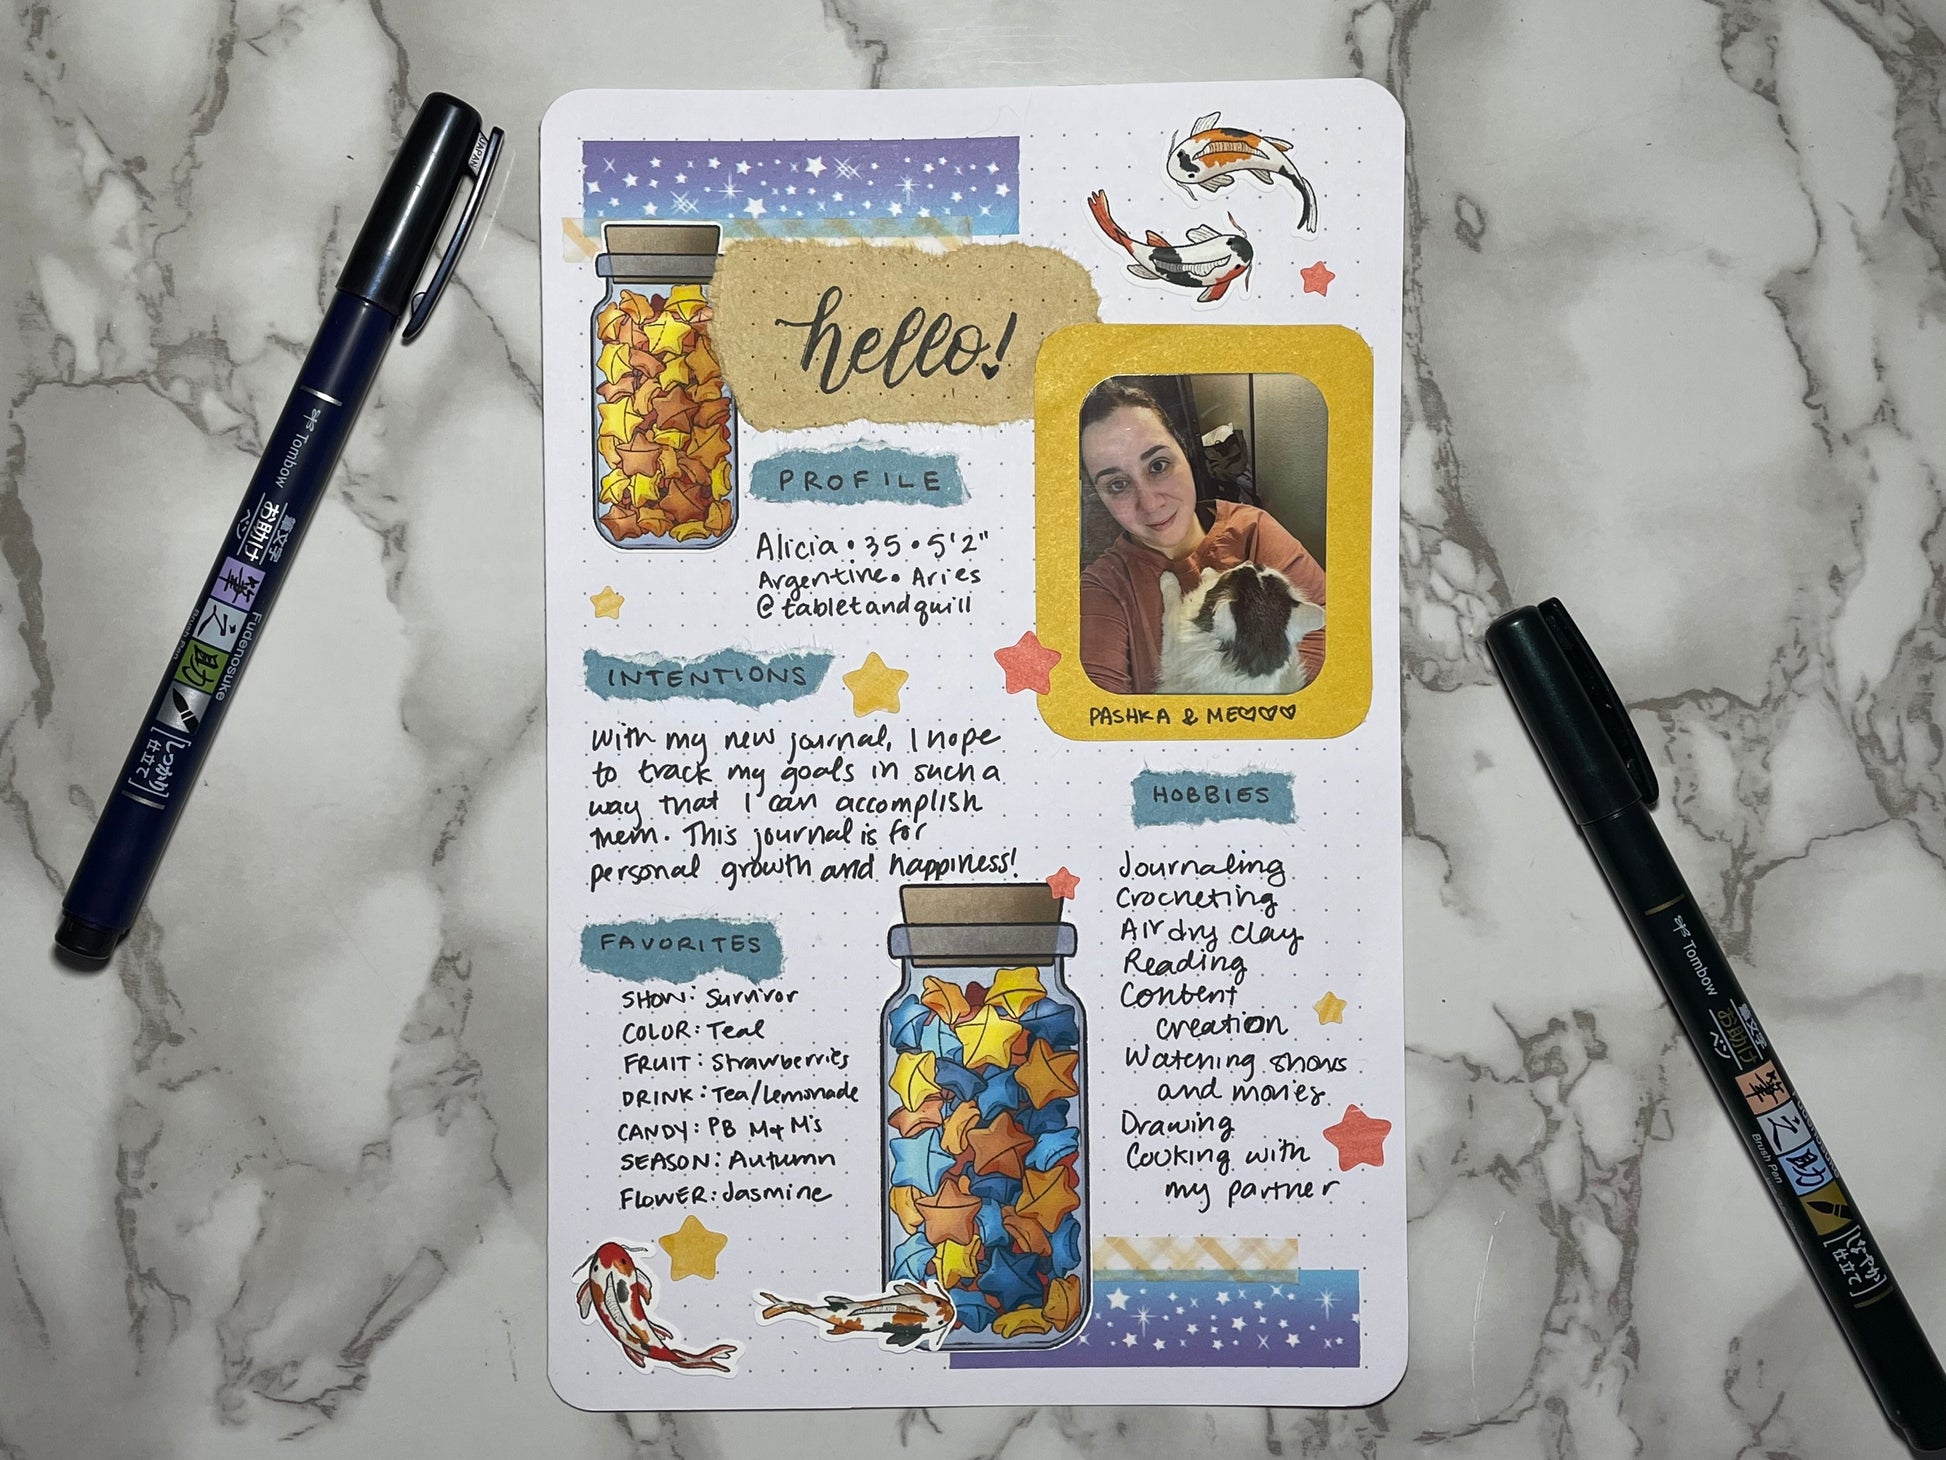 hello!
PROFILE
Alicia • 35 • 5'2"
Argentine • Aries
@tabletandquill
PASHKA & ME♡♡♡
INTENTIONS
With my new journal, I hope
to track my goals in such a
way that I can accomplish
them. This journal is for
personal growth and happiness!
FAVORITES
SHOW: Survivor
COLOR: Teal
FRUIT: Strawberries
DRINK: Tea/Lemonade
CANDY: PB M+M's
SEASON: Autumn
FLOWER: Jasmine
HOBBIES
Journaling
Crocheting
Air dry clay
Reading
Content
creation
Watching shows
and movies
Drawing
Cooking with
my partner
JAPAN
Tombow
筆之助
Fudenosuke
Brush Pen
[しっかり
仕立て]
Tombow
筆之
Brush Pen